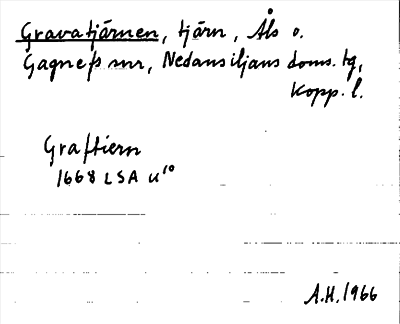 Gravatjärnen, tjärn, Åls o.
Gagnefs snr, Nedansiljans doms. tg,
Kopp. l.
Graftiern
1668 LSA U¹⁰
A.H. 1966